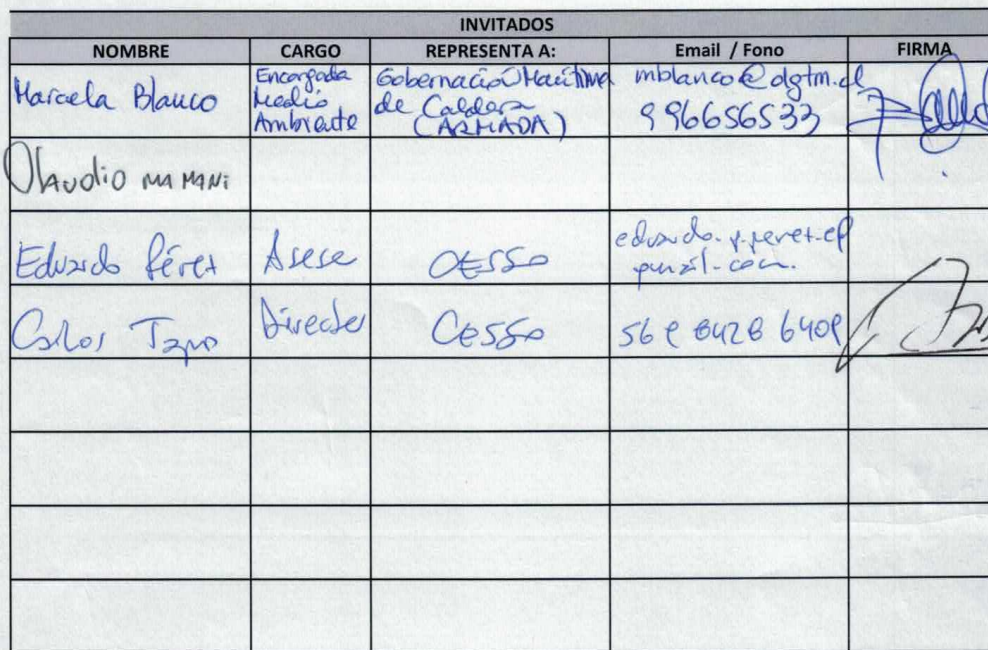 INVITADOS
NOMBRE CARGO REPRESENTA A: Email / Fono FIRMA
Marcela Blanco Encargada Medio Ambiente Gobernación Marítima de Caldera (ARMADA) mblanco@dgtm.cl 996656533
Claudio MAMANi
Eduardo Pérez Asesor CESSO
Carlos Tapia Director CESSO